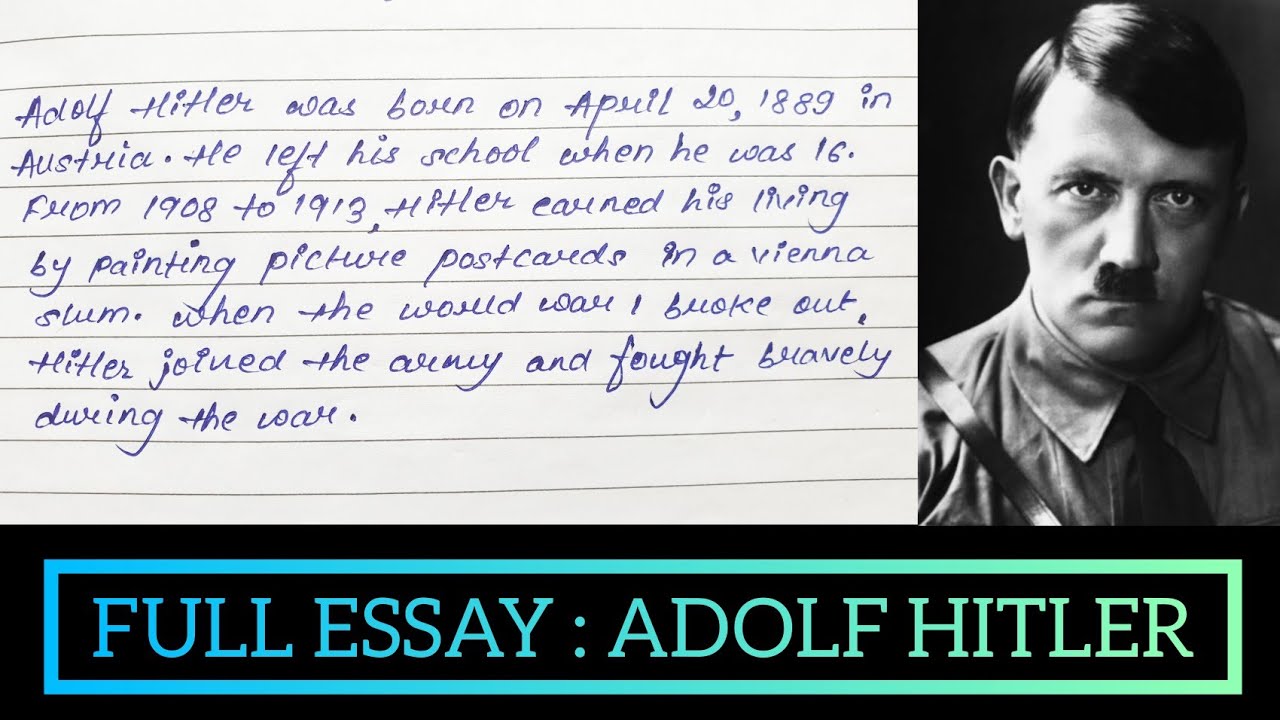 Adolf Hitler was born on April 20, 1889 in
Austria. He left his school when he was 16.
From 1908 to 1913, Hitler earned his living
by painting picture postcards in a vienna
slum. when the world war 1 broke out,
Hitler joined the army and fought bravely
during the war.
FULL ESSAY : ADOLF HITLER